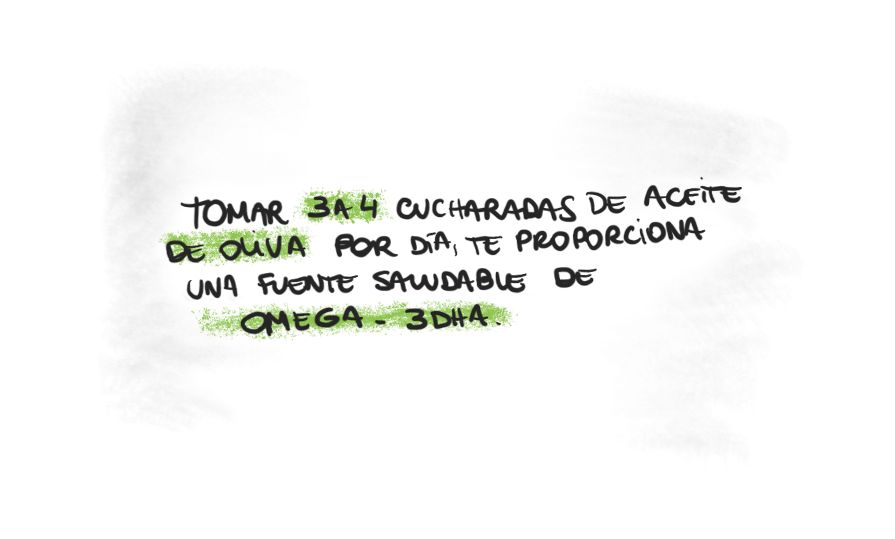 TOMAR 3 A 4 CUCHARADAS DE ACEITE
DE OLIVA POR DÍA, TE PROPORCIONA
UNA FUENTE SALUDABLE DE
OMEGA - 3 DHA.